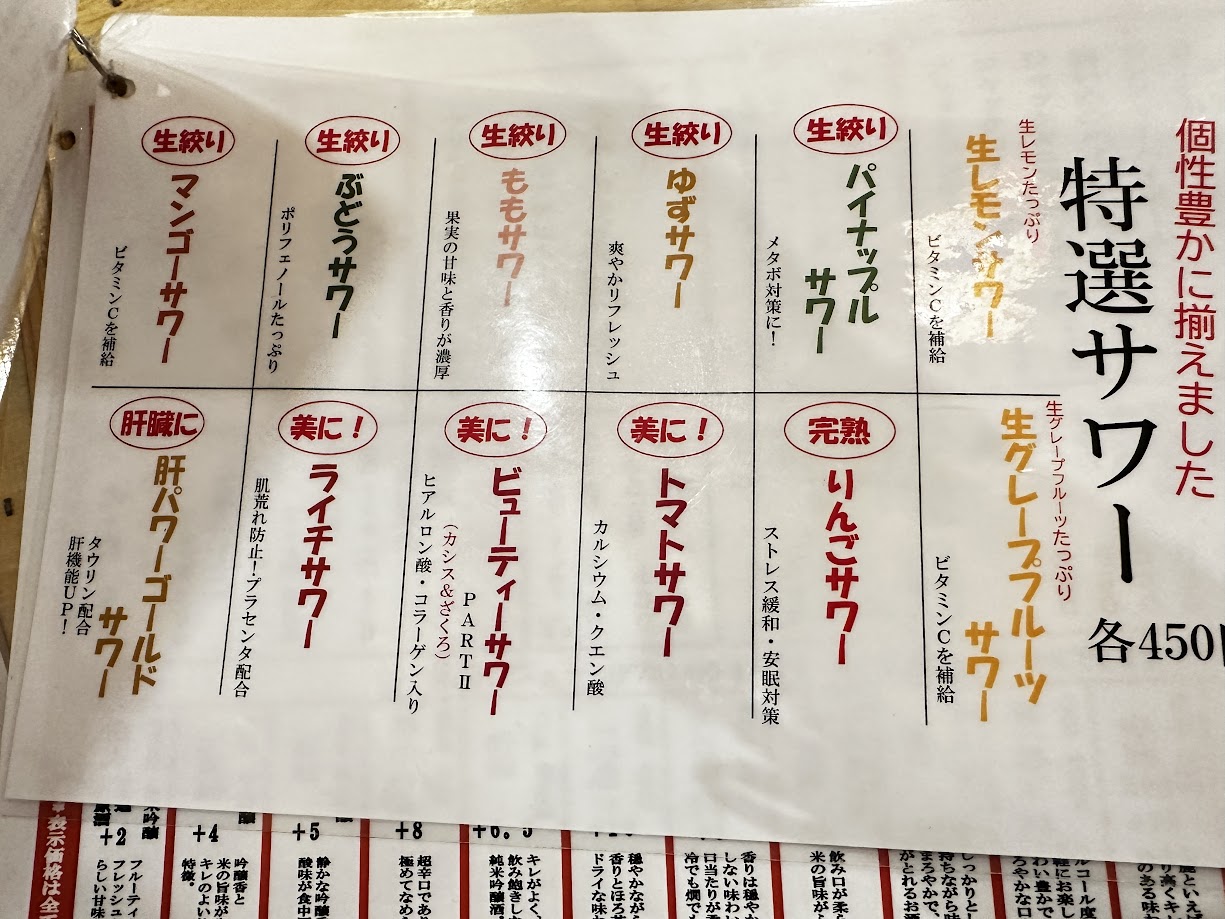 個性豊かに揃えました
特選サワー
各450
生レモンたっぷり
生レモンサワー
ビタミンCを補給
生絞り
パイナップル
サワー
メタボ対策に！
生絞り
ゆずサワー
爽やかリフレッシュ
生絞り
ももサワー
果実の甘味と香りが濃厚
生絞り
ぶどうサワー
ポリフェノールたっぷり
生絞り
マンゴーサワー
ビタミンCを補給
生グレープフルーツたっぷり
生グレープフルーツ
サワー
ビタミンCを補給
完熟
りんごサワー
ストレス緩和・安眠対策
美に！
トマトサワー
カルシウム・クエン酸
美に！
ビューティーサワー
PARTⅡ
（カシス＆ざくろ）
ヒアルロン酸・コラーゲン入り
美に！
ライチサワー
肌荒れ防止！プラセンタ配合
肝臓に
肝パワーゴールド
サワー
タウリン配合
肝機能UP！
+8
超辛口であり
極めてなめ
+5
静かな吟醸
酸味が食中
+4
吟醸香と
米の旨味が
キレのよい
特徴。
+2
フルーティ
フレッシュ
らしい甘味
表示価格は全